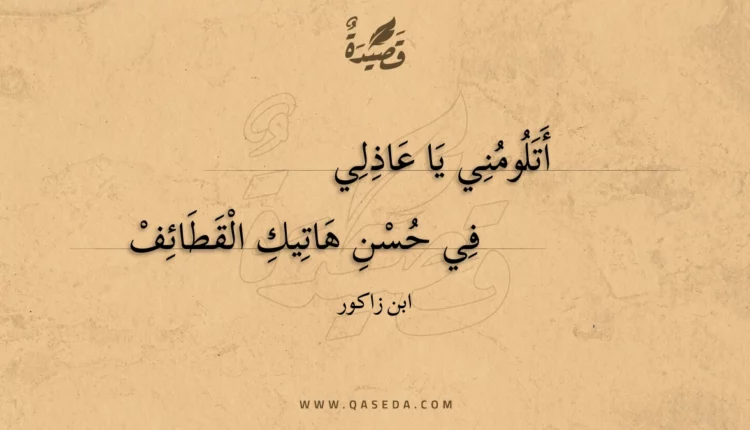 قَصِيدَةٌ
أَتَلُومُنِي يَا عَاذِلِي
فِي حُسْنِ هَاتِيكِ الْقَطَائِفْ
ابن زاكور
WWW.QASEDA.COM